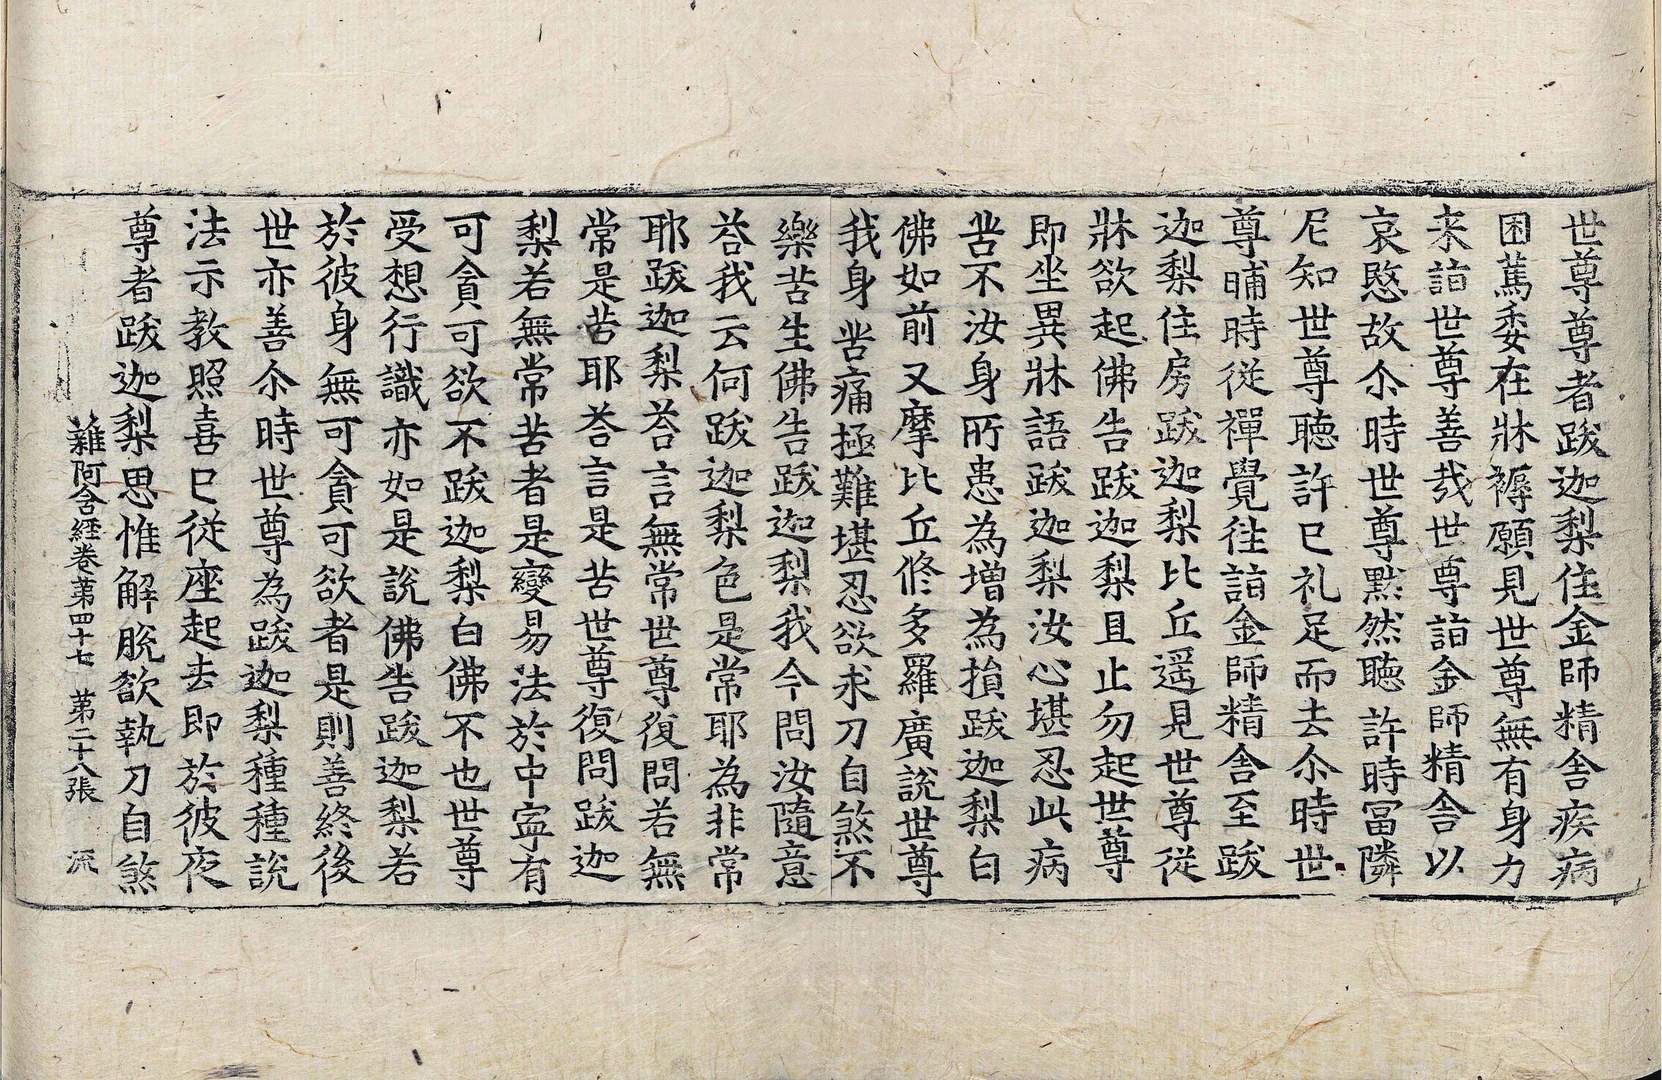 世尊尊者跋迦梨住金師精舍疾病
困萬委在牀褥願見世尊無有身力
来詣世尊善㢤世尊詣金師精舍以
哀愍故尒時世尊默然聽許時冨隣
尼知世尊聽許已礼足而去尒時世
尊晡時從禪覺徃詣金師精舍至跋
迦梨住房跋迦梨比丘遥見世尊從
牀欲起佛告跋迦梨且止勿起世尊
即坐異牀語跋迦梨汝心堪忍此病
苦不汝身所患為增為損跋迦梨白
佛如前叉摩比丘修多羅廣說世尊
我身苦痛極難堪忍欲求刀自煞不
樂苦生佛告跋迦梨我今問汝隨意
荅我云何跋迦梨色是常耶為非常
耶跋迦梨荅言無常世尊復問若無
常是苦耶荅言是苦世尊復問跋迦
梨若無常苦者是變易法於中寧有
可貪可欲不跋迦梨白佛不也世尊
受想行識亦如是說佛告跋迦梨若
於彼身無可貪可欲者是則善終後
世亦善尒時世尊為跋迦梨種種說
法示教照喜已從座起去即於彼夜
尊者跋迦梨思惟解脫欲執刀自煞
雜阿含經卷苐四十七 第二十八張 流